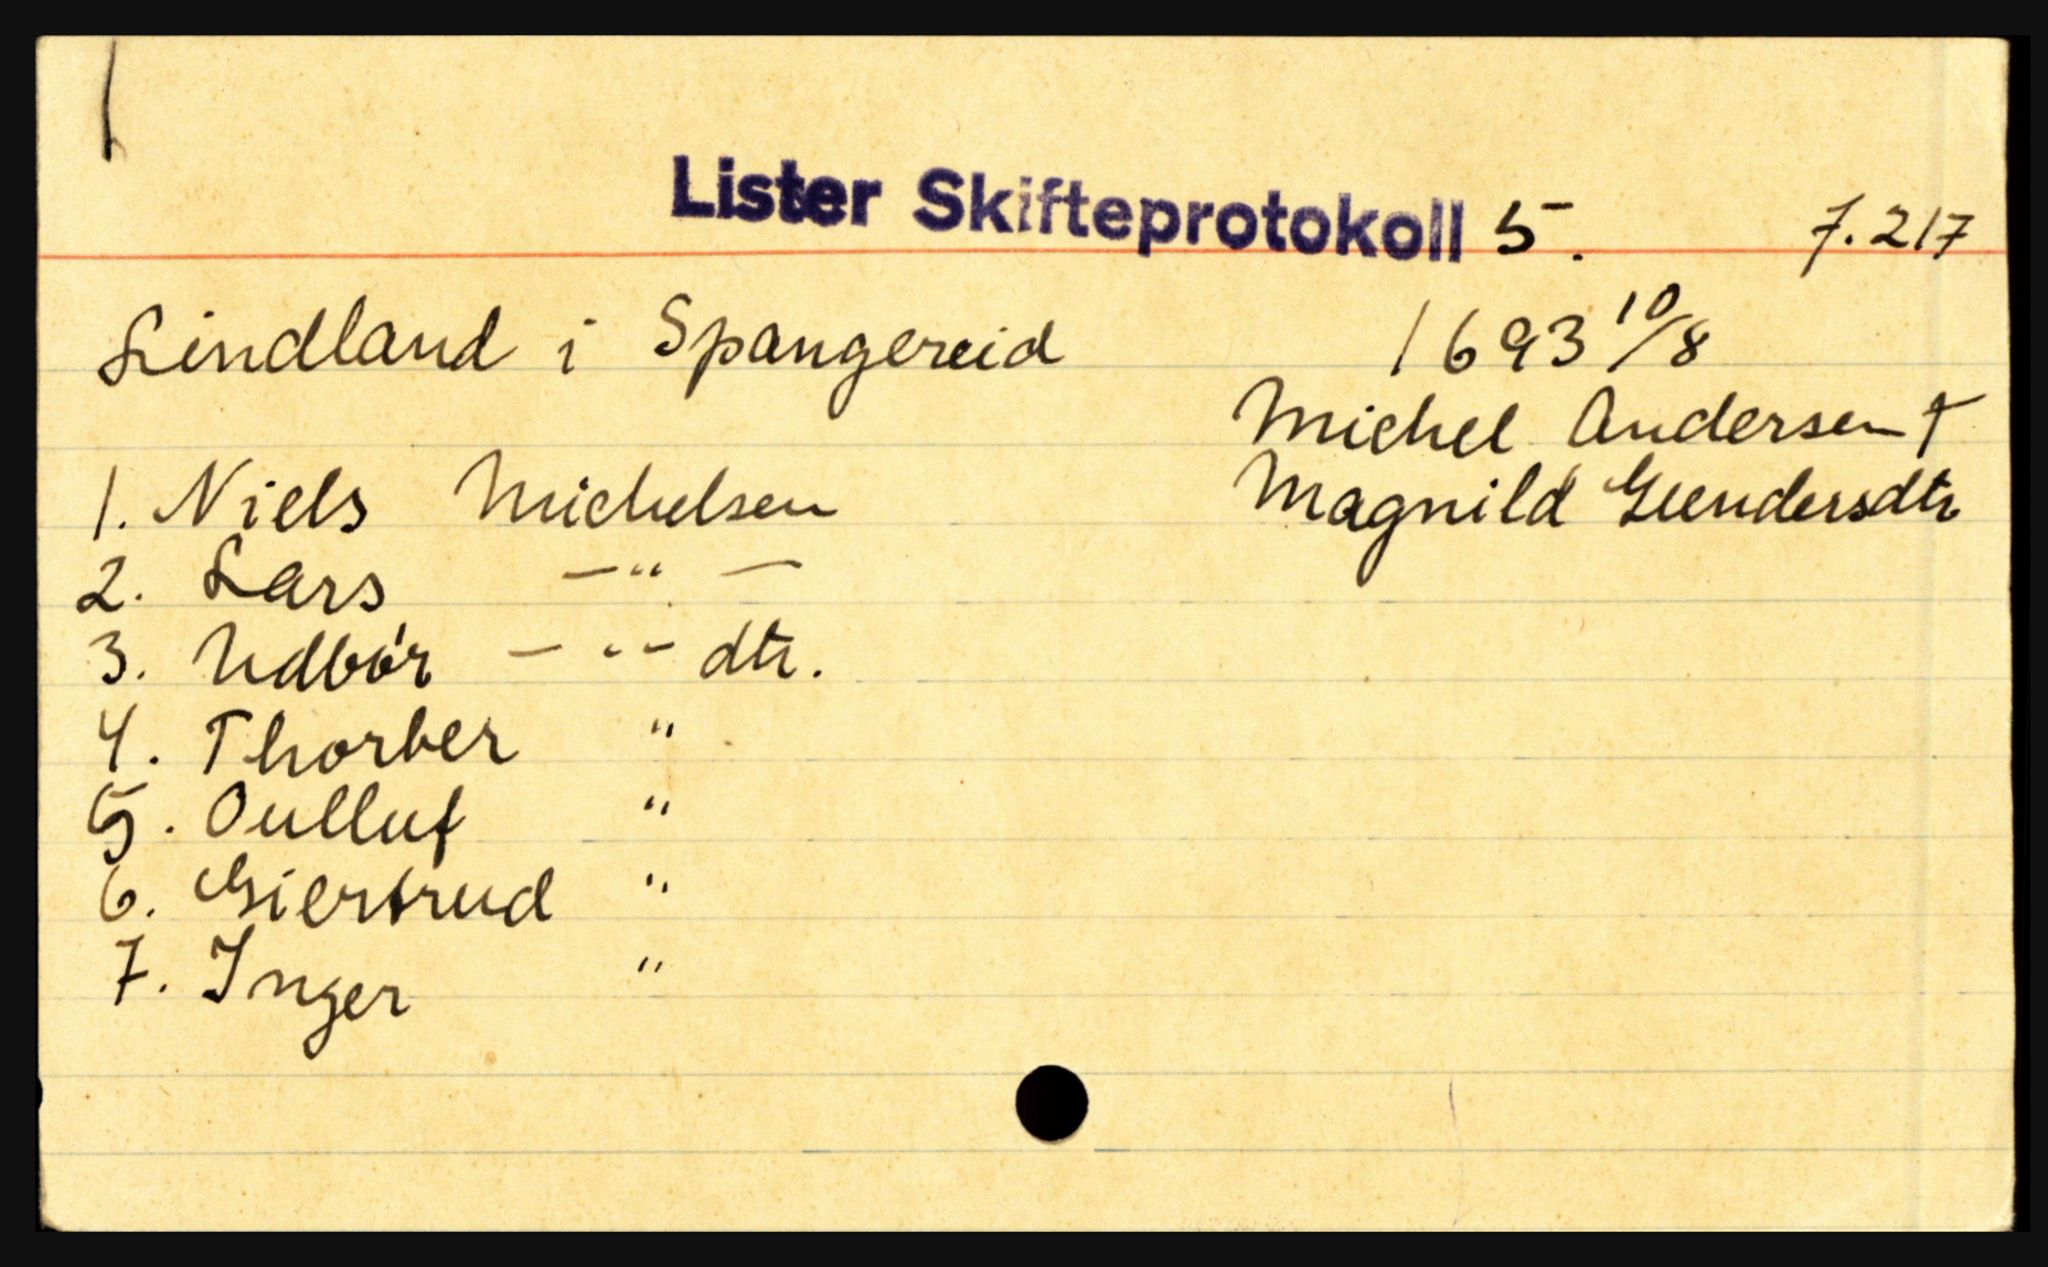 Lister Skifteprotokoll 5. f. 217
Lindland i Spangereid 1693 10/8
Michel Andersen †
Magnild Gundersdtr
1. Niels Michelsen
2. Lars — " —
3. Udbór — " — dtr.
4. Thorber "
5. Oulluf "
6. Giertrud "
7. Inger "